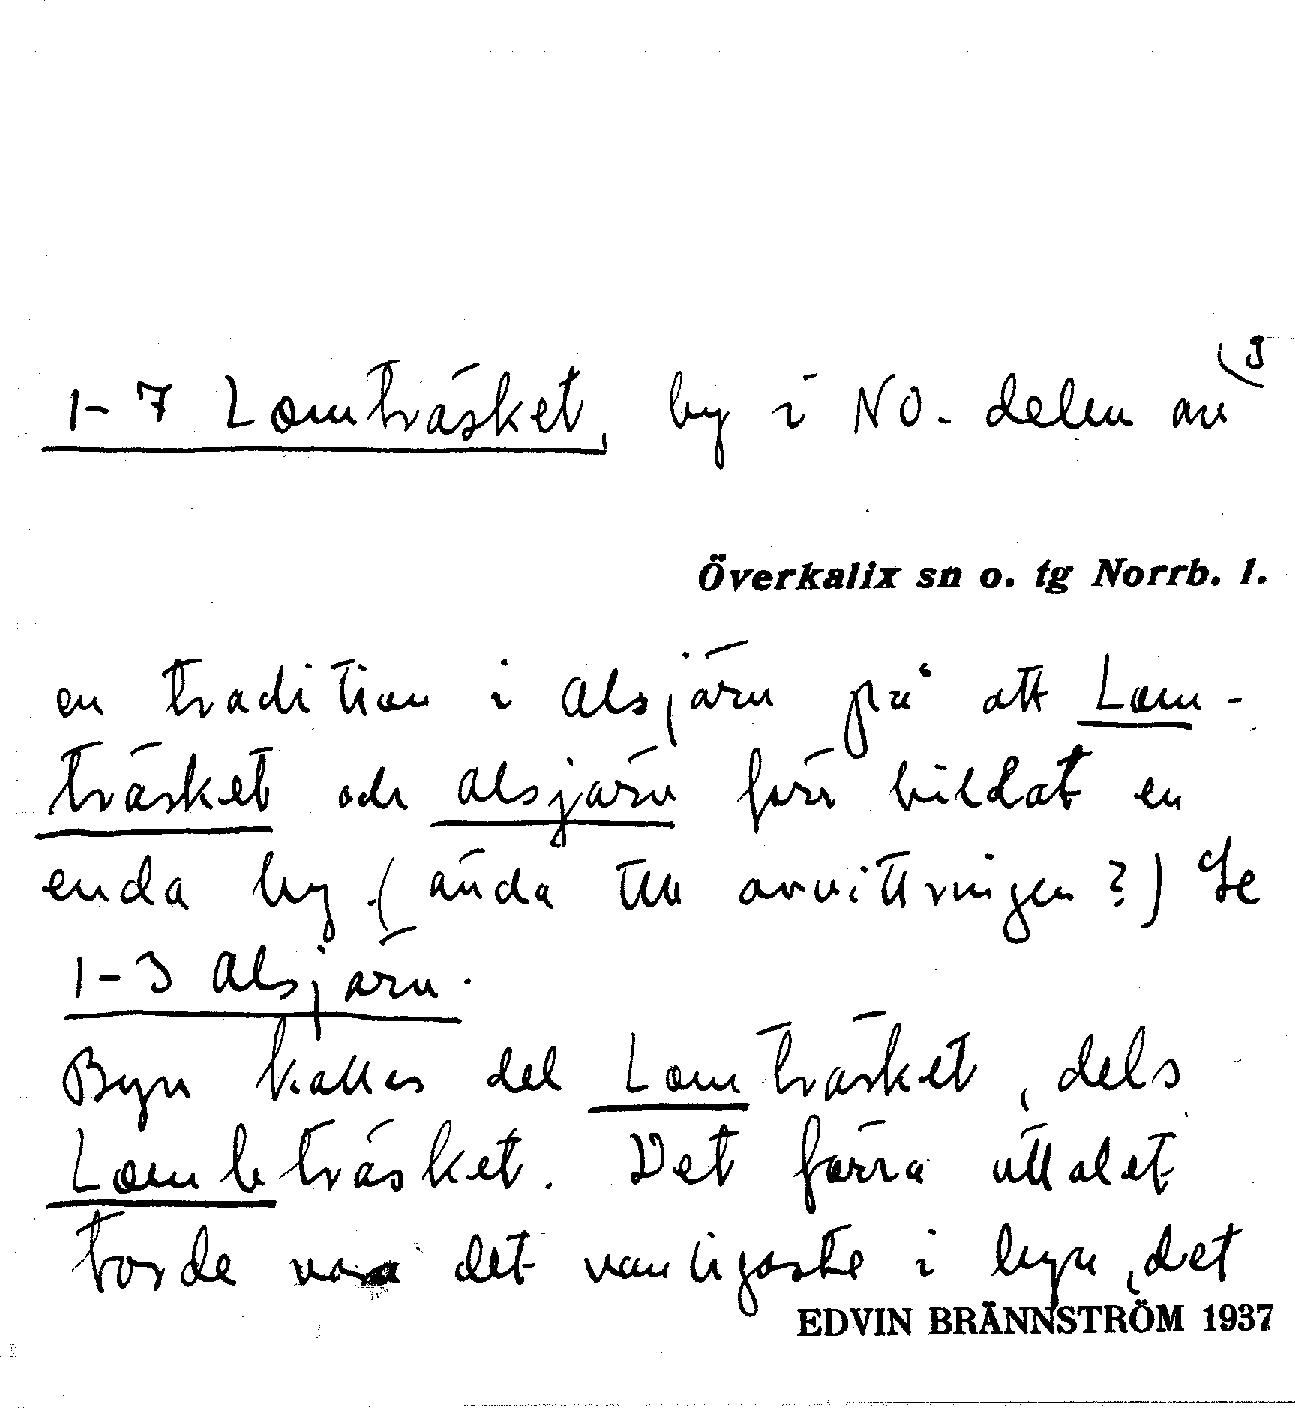 (3
1-7 Lomträsket, by i NO. delen av
Överkalix sn o. tg Norrb. l.
en tradition i Alsjärv på att Lom-
träsket och Alsjärv förr bildat en
enda by (ända till avvittringen?) Se
1-3 Alsjärv.
Byn kallas del Lomträsket, dels
Lombträsket. Det förra uttalet
torde vara det vanligaste i byn, det
EDVIN BRÄNNSTRÖM 1937